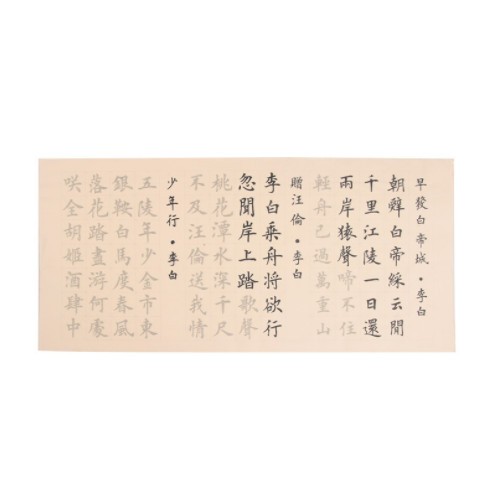 早發白帝城・李白
朝辭白帝綵雲間
千里江陵一日還
兩岸猿聲啼不住
輕舟已過萬重山
贈汪倫・李白
李白乘舟將欲行
忽聞岸上踏歌聲
桃花潭水深千尺
不及汪倫送我情
少年行・李白
五陵年少金市東
銀鞍白馬度春風
落花踏盡游何處
咲全胡姬酒肆中